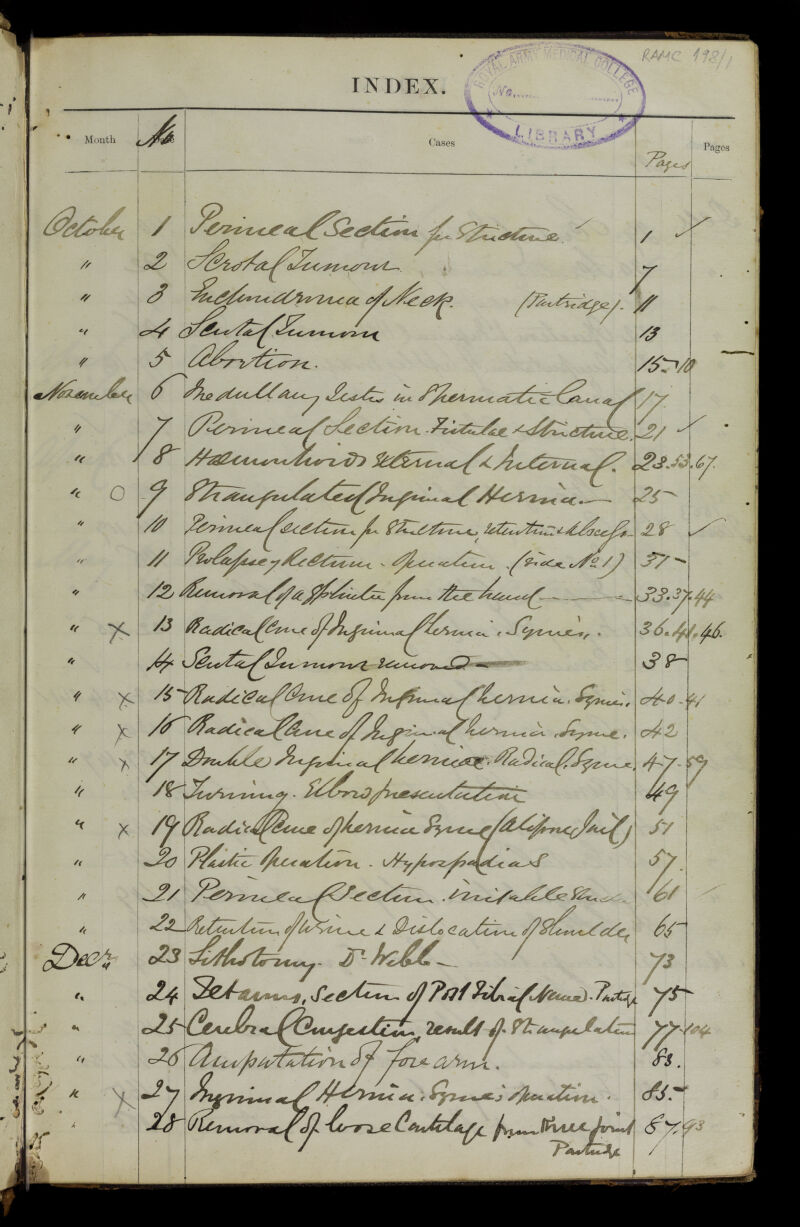 RAMC 198/1
INDEX.
ROYAL ARMY MEDICAL COLLEGE
No.
LIBRARY
Month No Cases Pages Pages
October 1 Perineal Section for Stricture. 1 ✓
" 2 Scrotal Tumour 7
" 3 Enchondroma of Neck. (Partridge). 11
" 4 Scrotal Tumour 13
" 5 Abortion. 15-10
November 6 Medullary Testis in Spermatic Canal 17
" 7 Perineal Section. Fistulae & Stricture. 21 ✓
" 8 Hæmorrhoids External & Internal. 23.53.67.
" O 9 Strangulated Inguinal Hernia — 25
" 10 Perineal Section for Stricture, retention & Abscess 28 ✓
" 11 Prolapse of Rectum - Operation. (vide No 1) 31-
" 12 Removal of a Splinter from the hand 33.37.44
" X 13 Radical Cure of Inguinal hernia. Syme's. 36.41.46.
" 14 Scrotal Tumour removed — 38
" X 15 Radical Cure of Inguinal hernia. Syme's. 40-41
" X 16 Radical Cure of Inguinal hernia. Syme. 42
" X 17 Double Inguinal herniae. Radical. Syme. 47-59
" 18 Turning. Elbow presentation 49
" X 19 Radical Cure of hernia Syme (Alipore Jail) 51
" 20 Plastic Operation - Hypospadias 57.
" 21 Perineal Section. irritable 61
" 22 Retention of Urine & Dislocation of Shoulder 65
Decr 23 Lithotomy. Dr Webb — 73
" 24 Tetanus, Section of Post Tibial Nerve. Partridge 75
" 25 Cerebral Congestion, result of Strangulation 77-104
" 26 Amputation of fore arm. 83.
" X 27 Inguinal Hernia. Syme's operation. 85-
" 28 Removal of loose Cartilage from Knee joint 87.93
Partridge